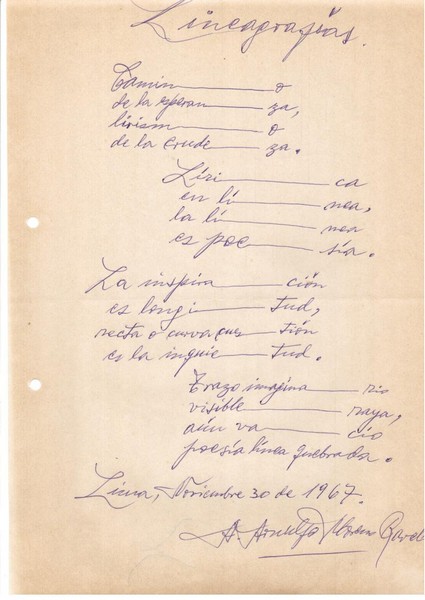 Lineagrafías.
Camin———o
de la esperan———za,
lirism———o
de la crude———za.
Líri———ca
en lí———nea,
la lí———nea
es poe———sía.
La inspira———ción
es longi———tud,
recta o curva cues———tión
es la inquie———tud.
Trazo imagina———rio
visible———raya,
aún va———cío
poesía línea quebrada.
Lima, Noviembre 30 de 1967.
A. Arnulfo Moran